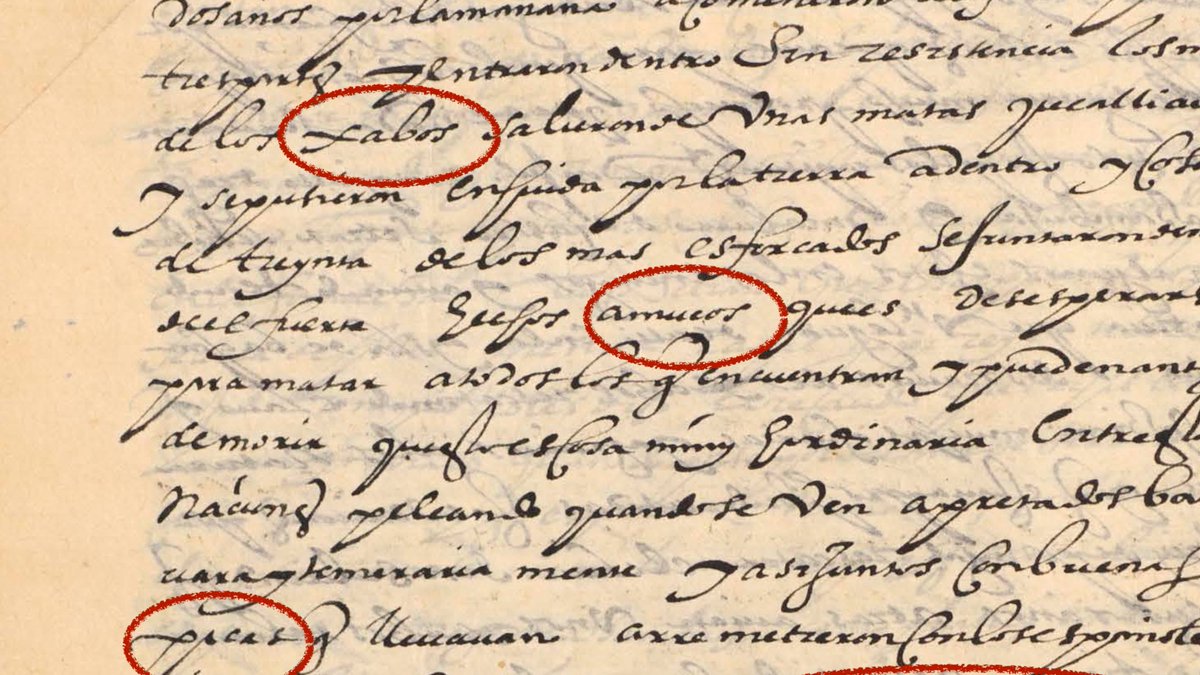 dosanos por la mañana acometieron
tres partes y entraron dentro Sin resistencia los m
de los xabos salieron de Unas matas que alli a
y se pusieron en huida por la tierra adentro y Cos
de treynta de los mas esforcados se juntaron den
de el fuerte hechos amucos que es desesperars
para matar a todos los q encuentran y pueden ant
de morir que esto es Cosa muy hordinaria Entre
Náciones peleando quando se Ven apretados ba
uara y temeraria mente y asi juntos Con buenas
picas q lleuauan arremetieron Con los españole